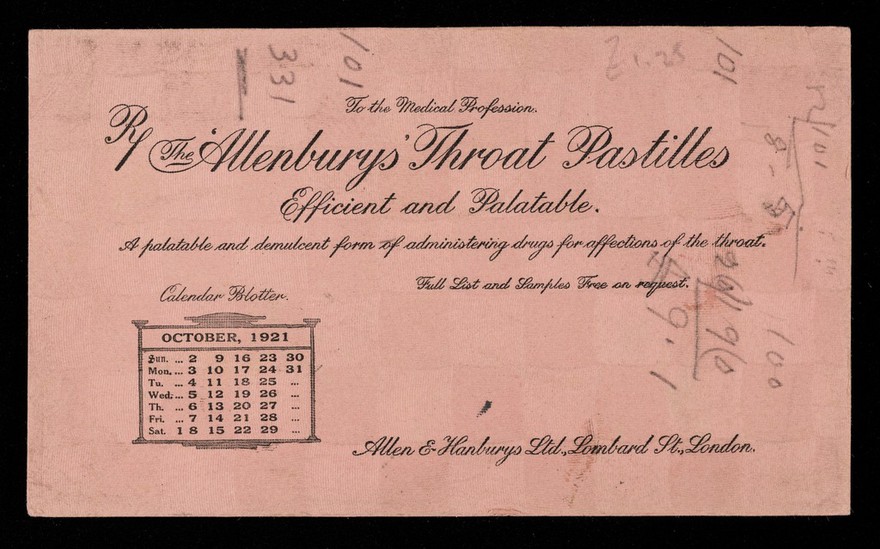 101
331
101
To the Medical Profession.
Rx The 'Allenburys' Throat Pastilles
Efficient and Palatable.
A palatable and demulcent form of administering drugs for affections of the throat.
Full List and Samples Free on request.
Calendar Blotter.
OCTOBER, 1921
Sun. ... 2 9 16 23 30
Mon. ... 3 10 17 24 31
Tu. ... 4 11 18 25 ...
Wed. ... 5 12 19 26 ...
Th. ... 6 13 20 27 ...
Fri. ... 7 14 21 28 ...
Sat. 1 8 15 22 29 ...
100
Allen & Hanburys Ltd., Lombard St., London.